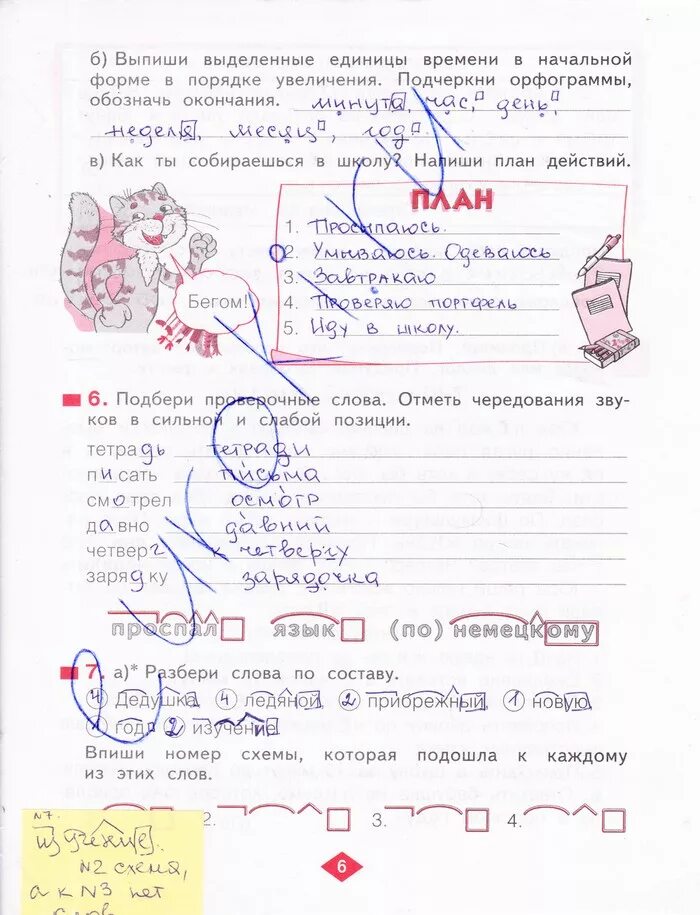 б) Выпиши выделенные единицы времени в начальной
форме в порядке увеличения. Подчеркни орфограммы,
обозначь окончания. минута, час, день,
неделя, месяц, год.
в) Как ты собираешься в школу? Напиши план действий.
ПЛАН
1. Просыпаюсь.
2. Умываюсь. Одеваюсь
3. Завтракаю
4. Проверяю портфель
5. Иду в школу.
Бегом!
6. Подбери проверочные слова. Отметь чередования зву-
ков в сильной и слабой позиции.
тетрадь тетради
писать письма
смотрел осмотр
давно давний
четверг к четвергу
зарядку зарядочка
проспал язык (по) немецкому
7. а)* Разбери слова по составу.
4 Дедушка, 4 ледяной, 2 прибрежный, 1 новую,
год, 2 изучение.
Впиши номер схемы, которая подошла к каждому
из этих слов.
2. 3. 4.
N7.
изучение.
N2 схема,
а к N3 нет
слов
6
УКОКИКИ